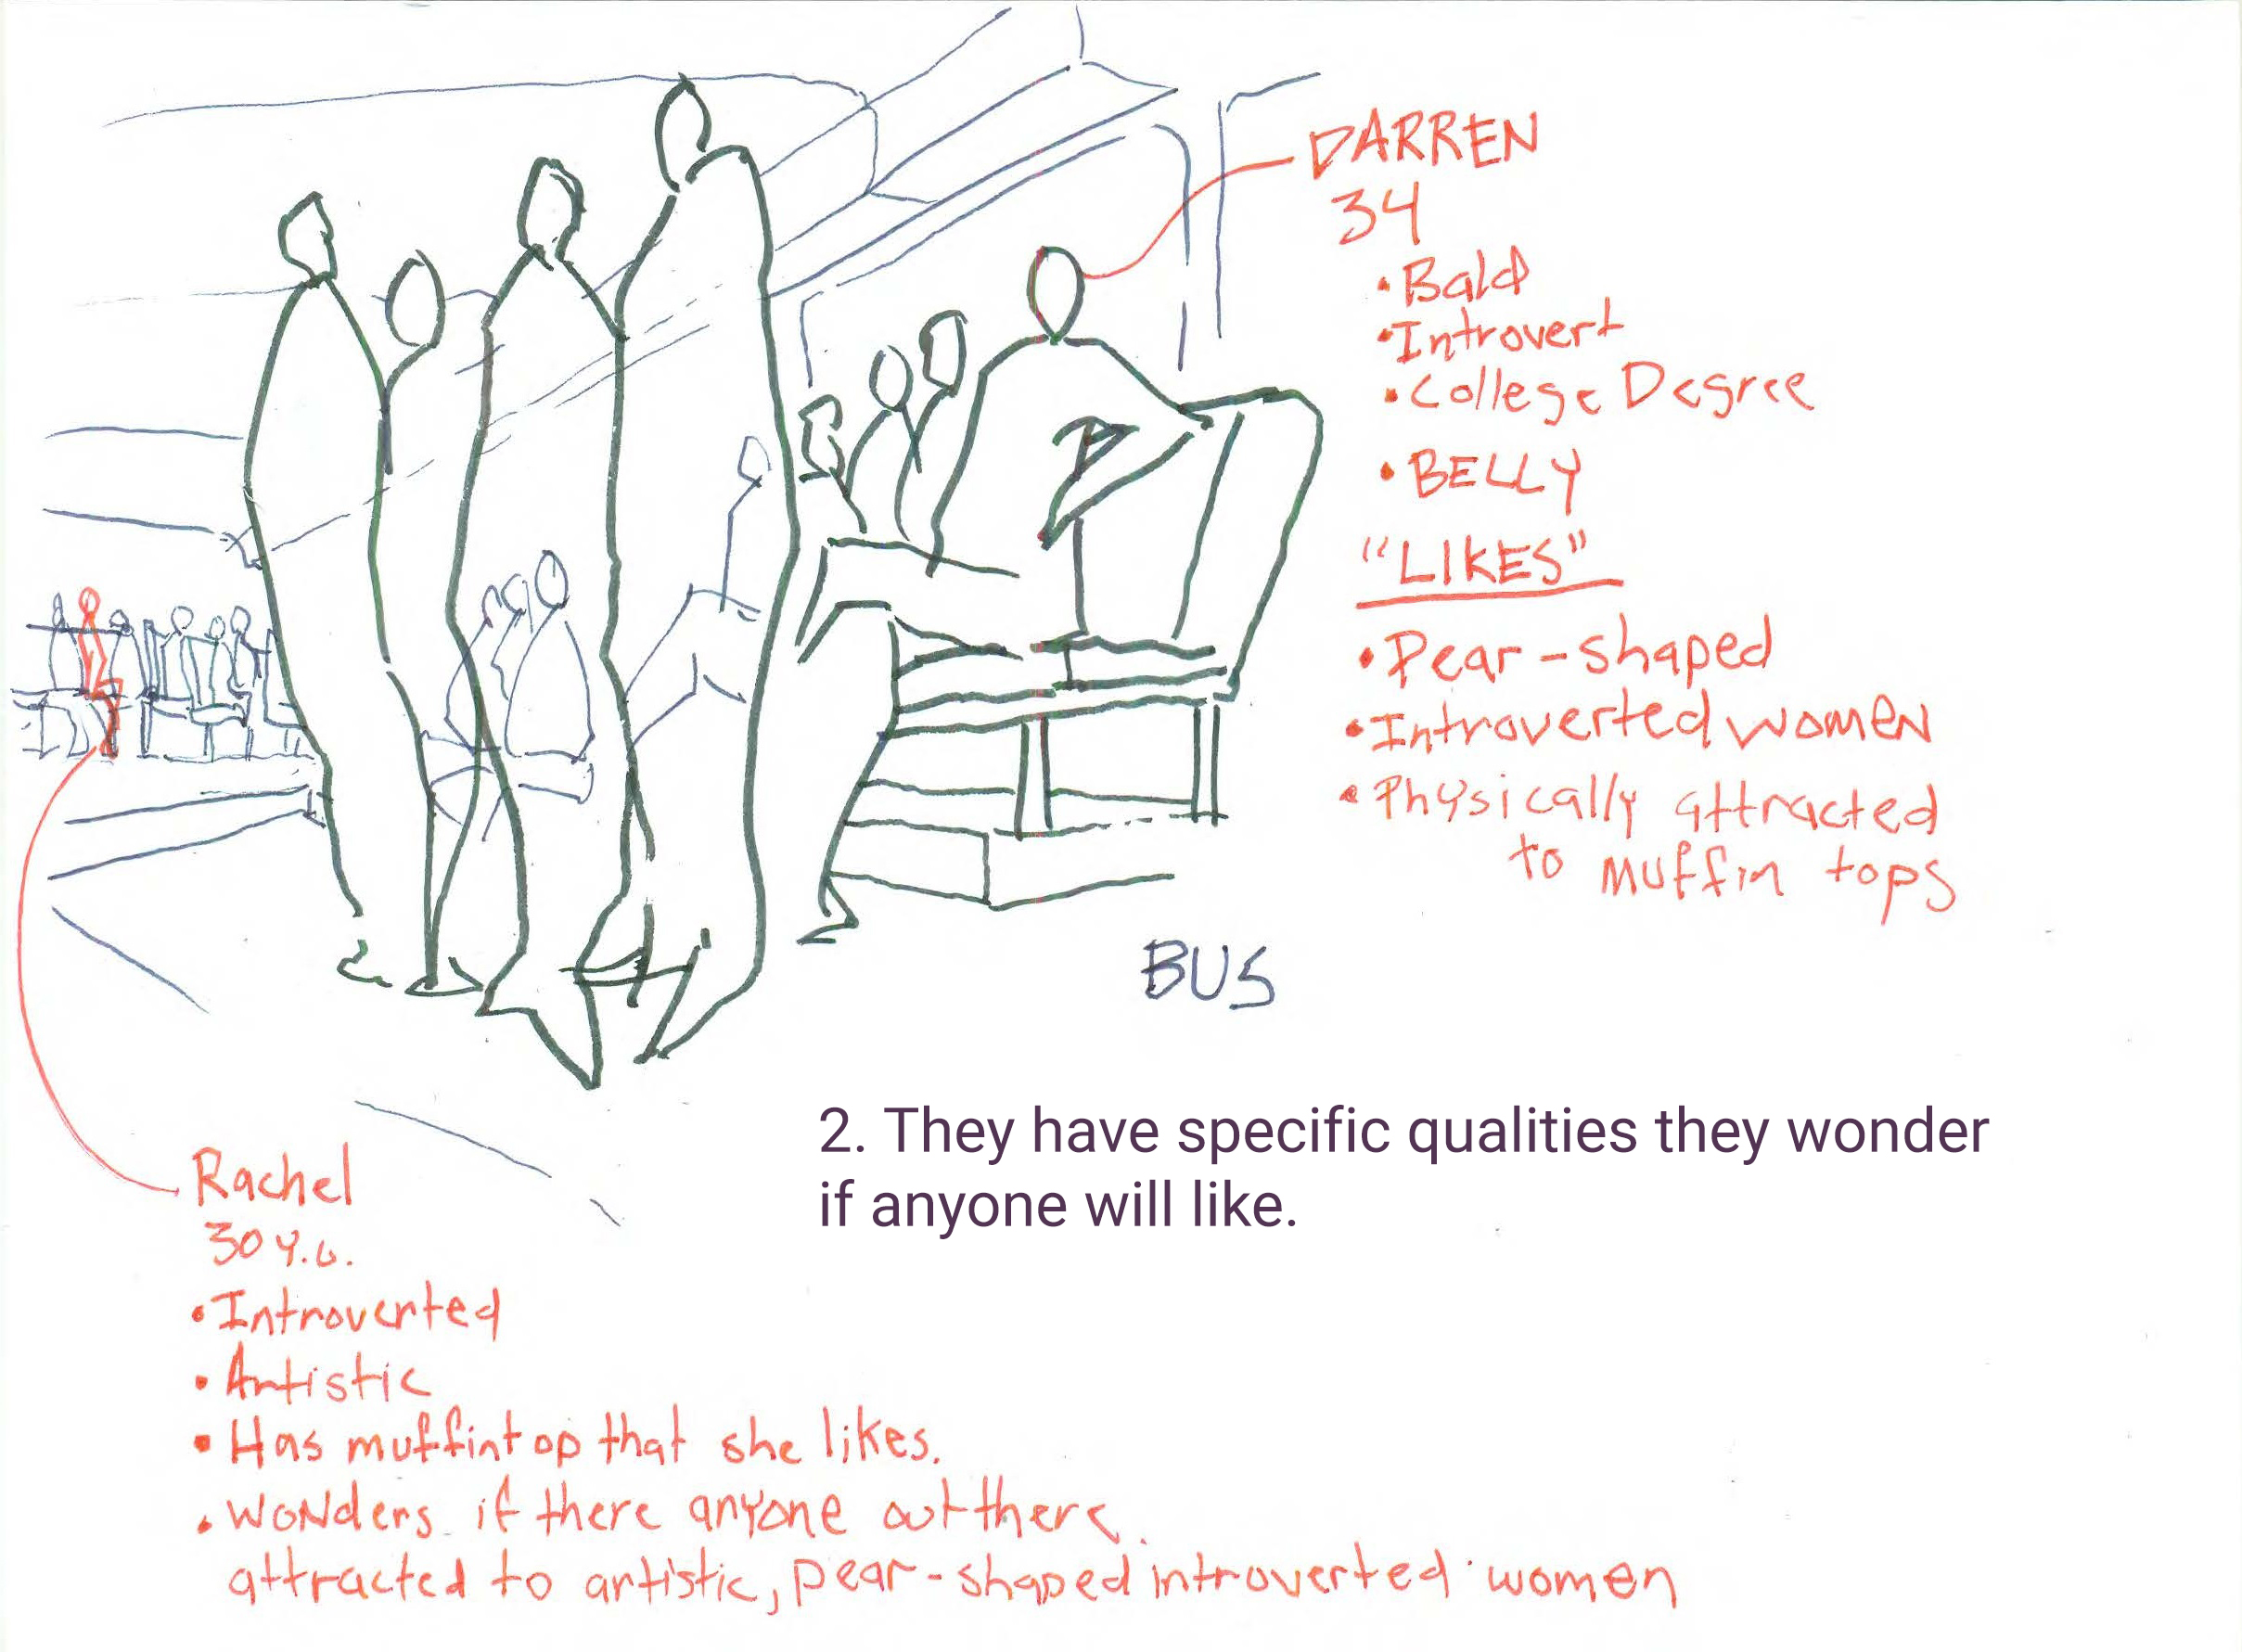 DARREN
34
• Bald
• Introvert
• College Degree
• BELLY
"LIKES"
• Pear-shaped
• Introverted women
• Physically attracted
to muffin tops
BUS
2. They have specific qualities they wonder
if anyone will like.
Rachel
30 y.o.
• Introverted
• Artistic
• Has muffintop that she likes.
• Wonders if there anyone out there
attracted to artistic, pear-shaped introverted women